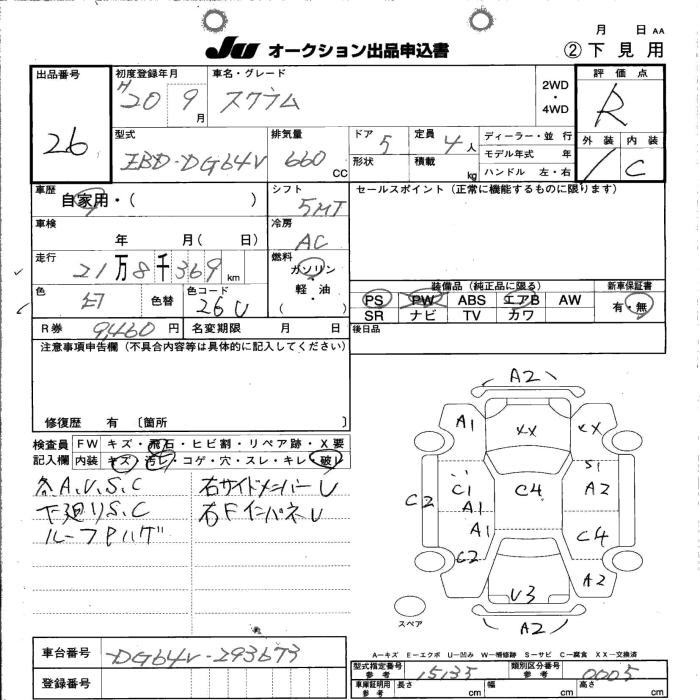 月 AA
JU オークション出品申込書 ②下見用
出品番号 26
初度登録年月 H20 9月
車名・グレード スクラム
2WD・4WD
評価点 R
外装 内装 C
型式 EBD-DG64V
排気量 660 CC
ドア 5 定員 4人
形状 積載 kg
ディーラー・並行
モデル年式 年
ハンドル 左・右
車歴 自家用・( )
シフト 5MT
セールスポイント(正常に機能するものに限ります)
車検 年 月( 日)
冷房 AC
走行 21万8千369km
燃料 ガソリン・軽油・( )
色 色替 色コード 26U
R券 9460円 名変期限 月 日
装備品(純正品に限る) 新車保証書
PS PW ABS エアB AW 有・無
SR ナビ TV カワ
後日品
注意事項申告欄(不具合内容等は具体的に記入してください)
修復歴 有〔箇所 〕
検査員記入欄 FW キズ・飛石・ヒビ割・リペア跡・X要
内装 キズ・汚れ・コゲ・穴・スレ・キレ・破れ
各A.U.S.C 右サイドメンバーU
下廻りS.C 右FインパネU
ルーフPハゲ
A2
A1 XX XX
S1
C2 C1 A1 C4 A2
A1 C4
C2 A2
U3
スペア
A2
A-キズ E-エクボ U-凹み W-補修跡 S-サビ C-腐食 XX-交換済
車台番号 DG64V-293673
登録番号
型式指定番号 参考 15135 類別区分番号 参考 0005
車庫証明用 参考 長さ cm 幅 cm 高さ cm